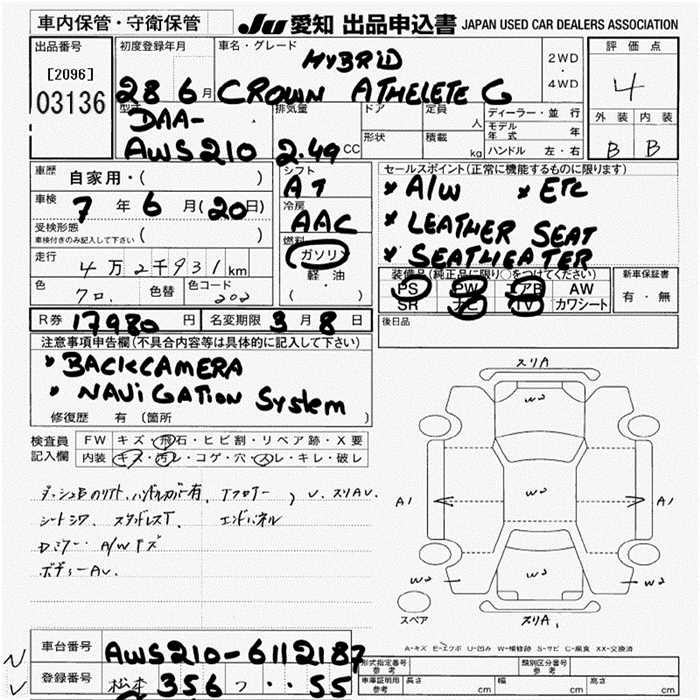 車内保管・守衛保管 JU 愛知 出品申込書 JAPAN USED CAR DEALERS ASSOCIATION
出品番号 初度登録年月 車名・グレード 評価点
[2096] HYBRID 2WD
・
03136 28 6月 CROWN ATHELETE G 4WD 4
型式 排気量 ドア 定員 人 ディーラー・並行 外装 内装
DAA- モデル年式 年
AWS210 2.49 CC 形状 積載 kg ハンドル 左・右 B B
車歴 自家用・( ) シフト セールスポイント(正常に機能するものに限ります)
AT * A/W * ETC
車検 7年 6月(20日) 冷房 * LEATHER SEAT
受検形態 ( ) AAC * SEATHEATER
車検付きのみ記入して下さい 燃料
走行 4万2千931km ガソリン 装備品(純正品に限り○をつけてください) 新車保証書
軽油 PS PW エアB AW 有・無
色 クロ. 色替 色コード 202 ( ・ ) SR ナビ TV カワシート
R券 17980 円 名変期限 3月8日 後日品
注意事項申告欄(不具合内容等は具体的に記入して下さい)
* BACKCAMERA スリA
* NAVIGATION System W2
修復歴 有 (箇所
検査員 FW キズ・飛石・ヒビ割・リペア跡・X要
記入欄 内装 キズ・汚レ・コゲ・穴・スレ・キレ・破レ
シートシワ、スタッドレスT エンドパネル A1 W2 A1
ドアミラー・ A/Wキズ
ボディーAU. W2 W2 W2
スペア スリA,
A-キズ E-エクボ U-凹み W-補修跡 S-サビ C-腐食 XX-交換済
車台番号 AWS210-6112187 形式指定番号 参考 類別区分番号 参考
登録番号 松本 356 つ ・・55 車庫証明用 参考 長さ cm 幅 cm 高さ cm